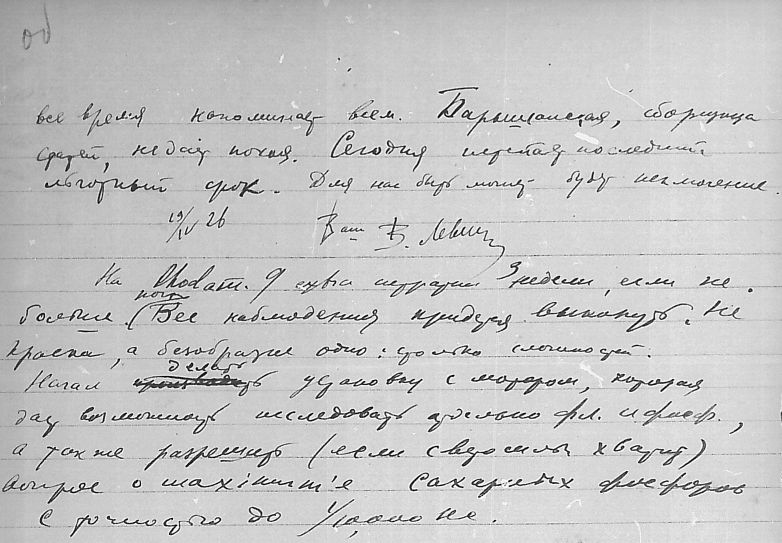 об
все время напоминает всем. Барышанская, сборщица
статей, не дает покоя. Сегодня истекает последний
льготный срок. Для нас быть может будут исключение.
19/IV 26 Ваш В. Левшин
На Rhodam. я ухитрил 3 недели, если не
больше. (Все наблюдения придется выкинуть. Не
краска, а безобразие одно: столько сложностей.
Начал делать установку с мотором, которая
даст возможность исследовать отдельно фл. и фосф.,
а также разрешить (если светосилы хватит)
вопрос о maximum'е сахарных фосфоров
с точностью до 1/10,000 sec.